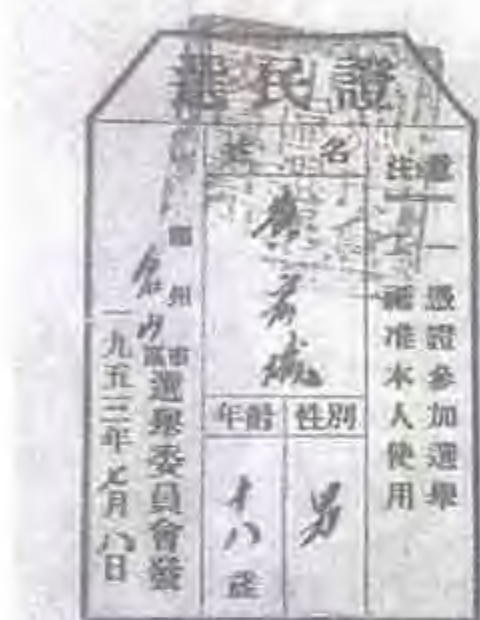 選民證
注意
一 憑證參加選舉
二 祗准本人使用
姓名
性別
男
年齡
十八歲
福州市倉山區選舉委員會發
一九五三年七月八日